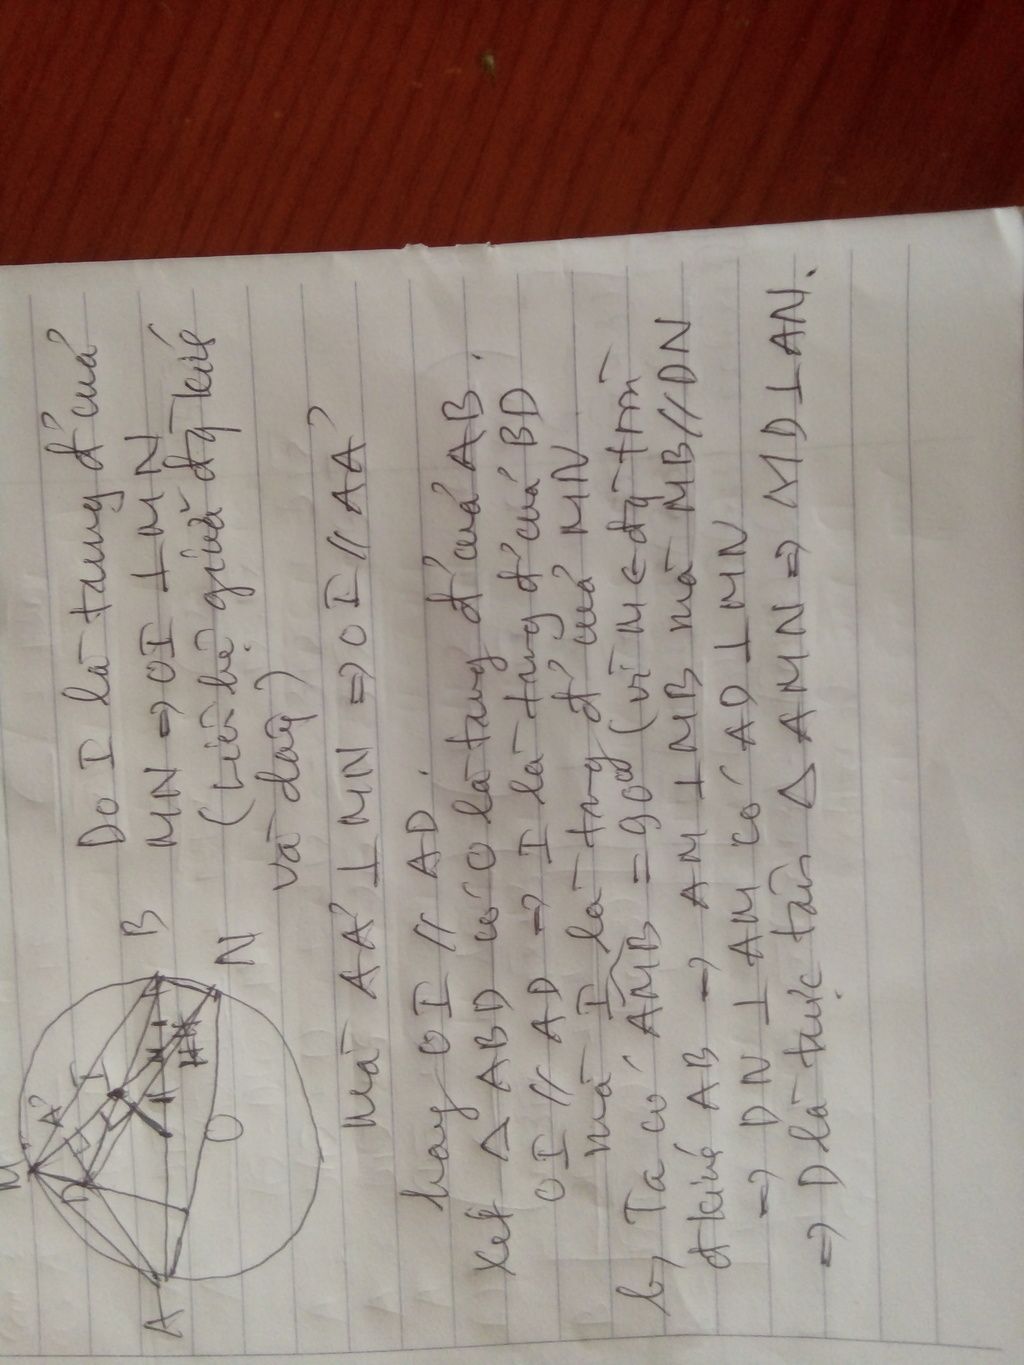 M
A'
D
I
B
H
A
O
N
Do I là trung đ' của
MN => OI ⊥ MN
(Liên hệ giữa đg kính
và dây)
Mà AA' ⊥ MN => OI // AA'
hay OI // AD.
Xét Δ ABD có O là trung đ' của AB.
OI // AD => I là trung đ' của BD
mà I là trung đ' của MN
b, Ta có AMB = 90⁰ (vì M ∈ đg tròn
đkính AB => AM ⊥ MB mà MB // DN
=> DN ⊥ AM có AD ⊥ MN
=> D là trực tâm Δ AMN => MD ⊥ AN.